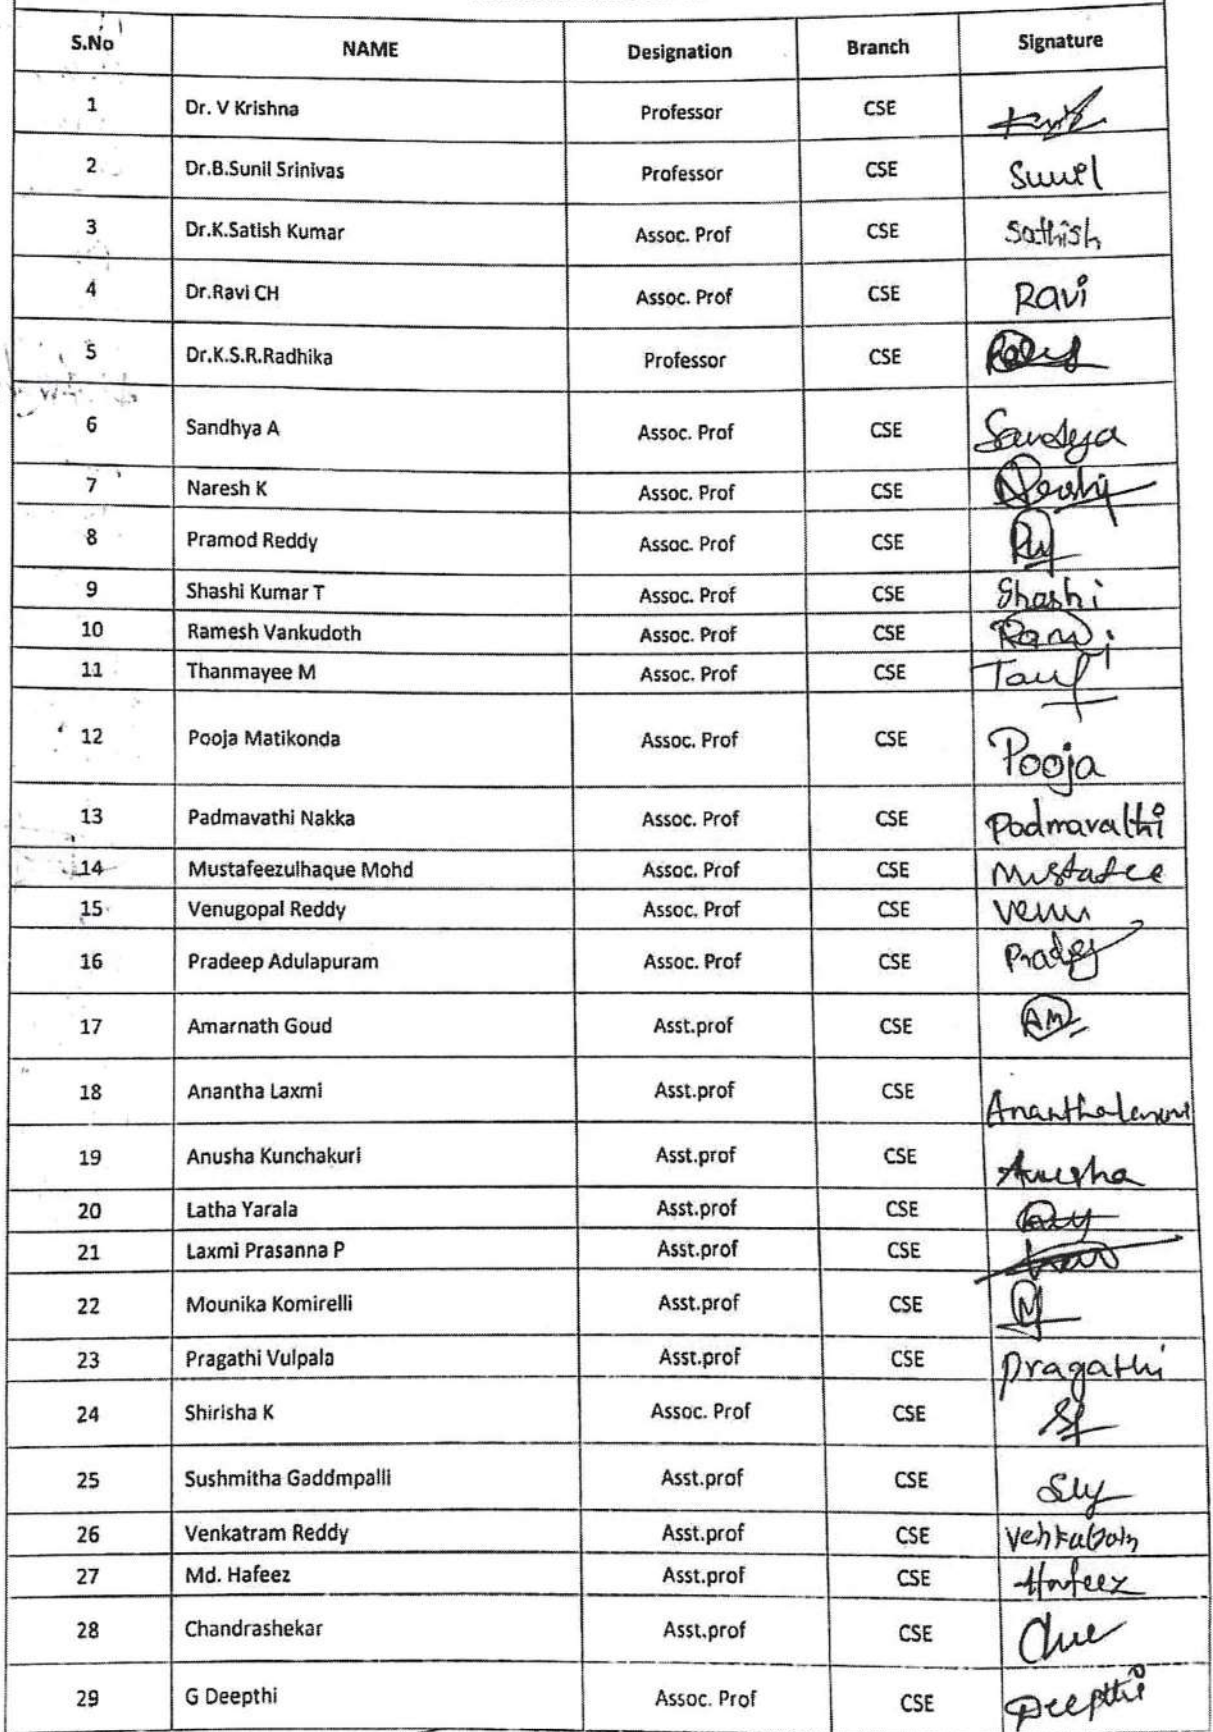 S.No NAME Designation Branch Signature
1 Dr. V Krishna Professor CSE
2 Dr.B.Sunil Srinivas Professor CSE Sunil
3 Dr.K.Satish Kumar Assoc. Prof CSE Sathish
4 Dr.Ravi CH Assoc. Prof CSE Ravi
5 Dr.K.S.R.Radhika Professor CSE
6 Sandhya A Assoc. Prof CSE Sandya
7 Naresh K Assoc. Prof CSE
8 Pramod Reddy Assoc. Prof CSE
9 Shashi Kumar T Assoc. Prof CSE Shashi
10 Ramesh Vankudoth Assoc. Prof CSE
11 Thanmayee M Assoc. Prof CSE
12 Pooja Matikonda Assoc. Prof CSE Pooja
13 Padmavathi Nakka Assoc. Prof CSE Padmavathi
14 Mustafeezulhaque Mohd Assoc. Prof CSE Mustafee
15 Venugopal Reddy Assoc. Prof CSE Venu
16 Pradeep Adulapuram Assoc. Prof CSE
17 Amarnath Goud Asst.prof CSE AM
18 Anantha Laxmi Asst.prof CSE Ananthalaxmi
19 Anusha Kunchakuri Asst.prof CSE Anusha
20 Latha Yarala Asst.prof CSE
21 Laxmi Prasanna P Asst.prof CSE
22 Mounika Komirelli Asst.prof CSE
23 Pragathi Vulpala Asst.prof CSE Pragathi
24 Shirisha K Assoc. Prof CSE
25 Sushmitha Gaddmpalli Asst.prof CSE
26 Venkatram Reddy Asst.prof CSE
27 Md. Hafeez Asst.prof CSE Hafeez
28 Chandrashekar Asst.prof CSE
29 G Deepthi Assoc. Prof CSE Deepthi